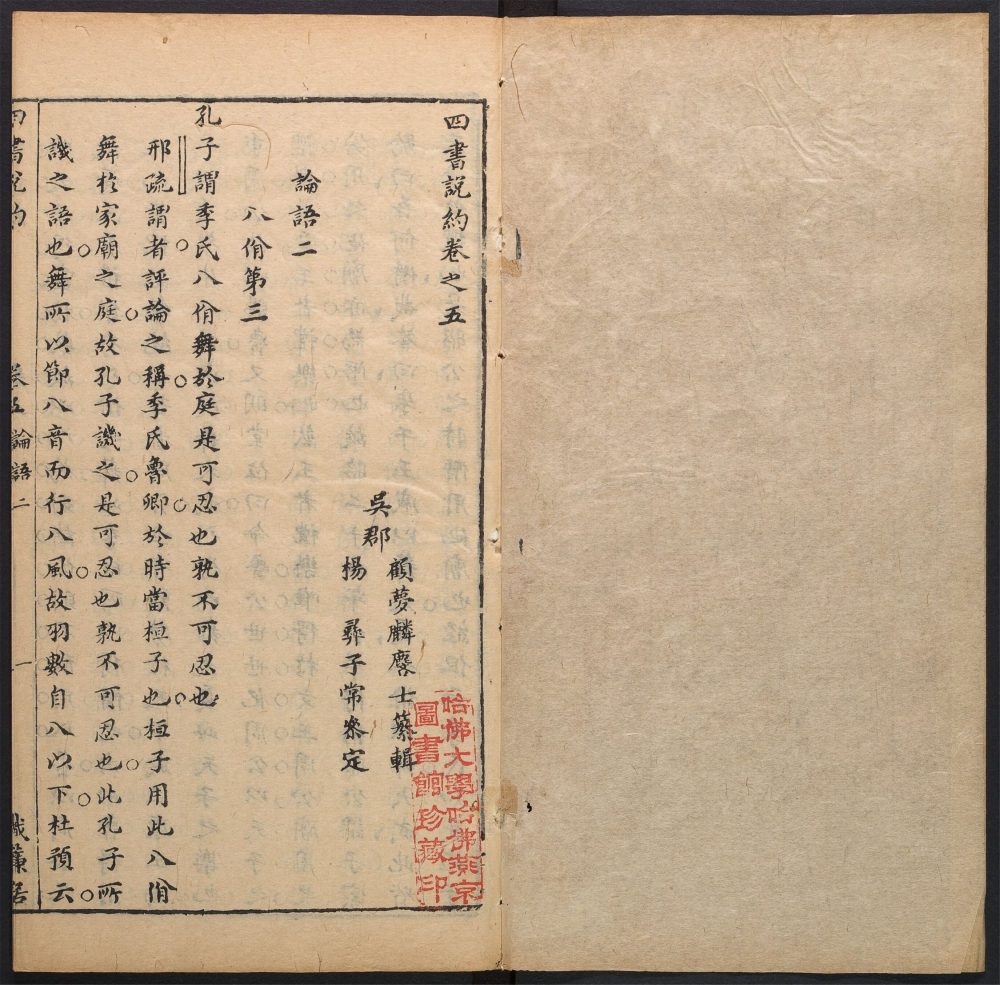 四書說約卷之五
吳郡
顧夢麟麐士纂輯
楊彝子常叅定
論語二
八佾第三
孔子謂季氏八佾舞於庭是可忍也孰不可忍也
邢疏謂者評論之稱季氏魯卿於時當桓子也桓子用此八佾
舞於家廟之庭故孔子譏之是可忍也孰不可忍也此孔子所
譏之語也舞所以節八音而行八風故羽數自八以下杜預云
四書說約
卷五 論語二
一
織簾居
哈佛大學哈佛燕京
圖書館珍藏印